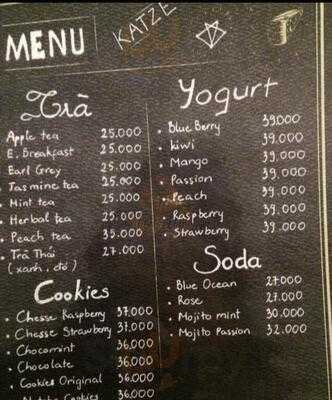 MENU
KATZE
Trà
Apple tea 25.000
E. Breakfast 25.000
Earl Grey 25.000
Jasmine tea 25.000
Mint tea 25.000
Herbal tea 25.000
Peach tea 35.000
Trà Thái 27.000
(xanh, đỏ)
Cookies
Chesse Raspbery 37.000
Chesse Strawbery 37.000
Chocomint 36.000
Chocolate 36.000
Cookies Original 36.000
Cookies 36.000
Yogurt
Blue Berry 39.000
kiwi 39.000
Mango 39.000
Passion 39.000
Peach 39.000
Raspberry 39.000
Strawberry 39.000
Soda
Blue Ocean 27.000
Rose 27.000
Mojito mint 30.000
Mojito Passion 32.000